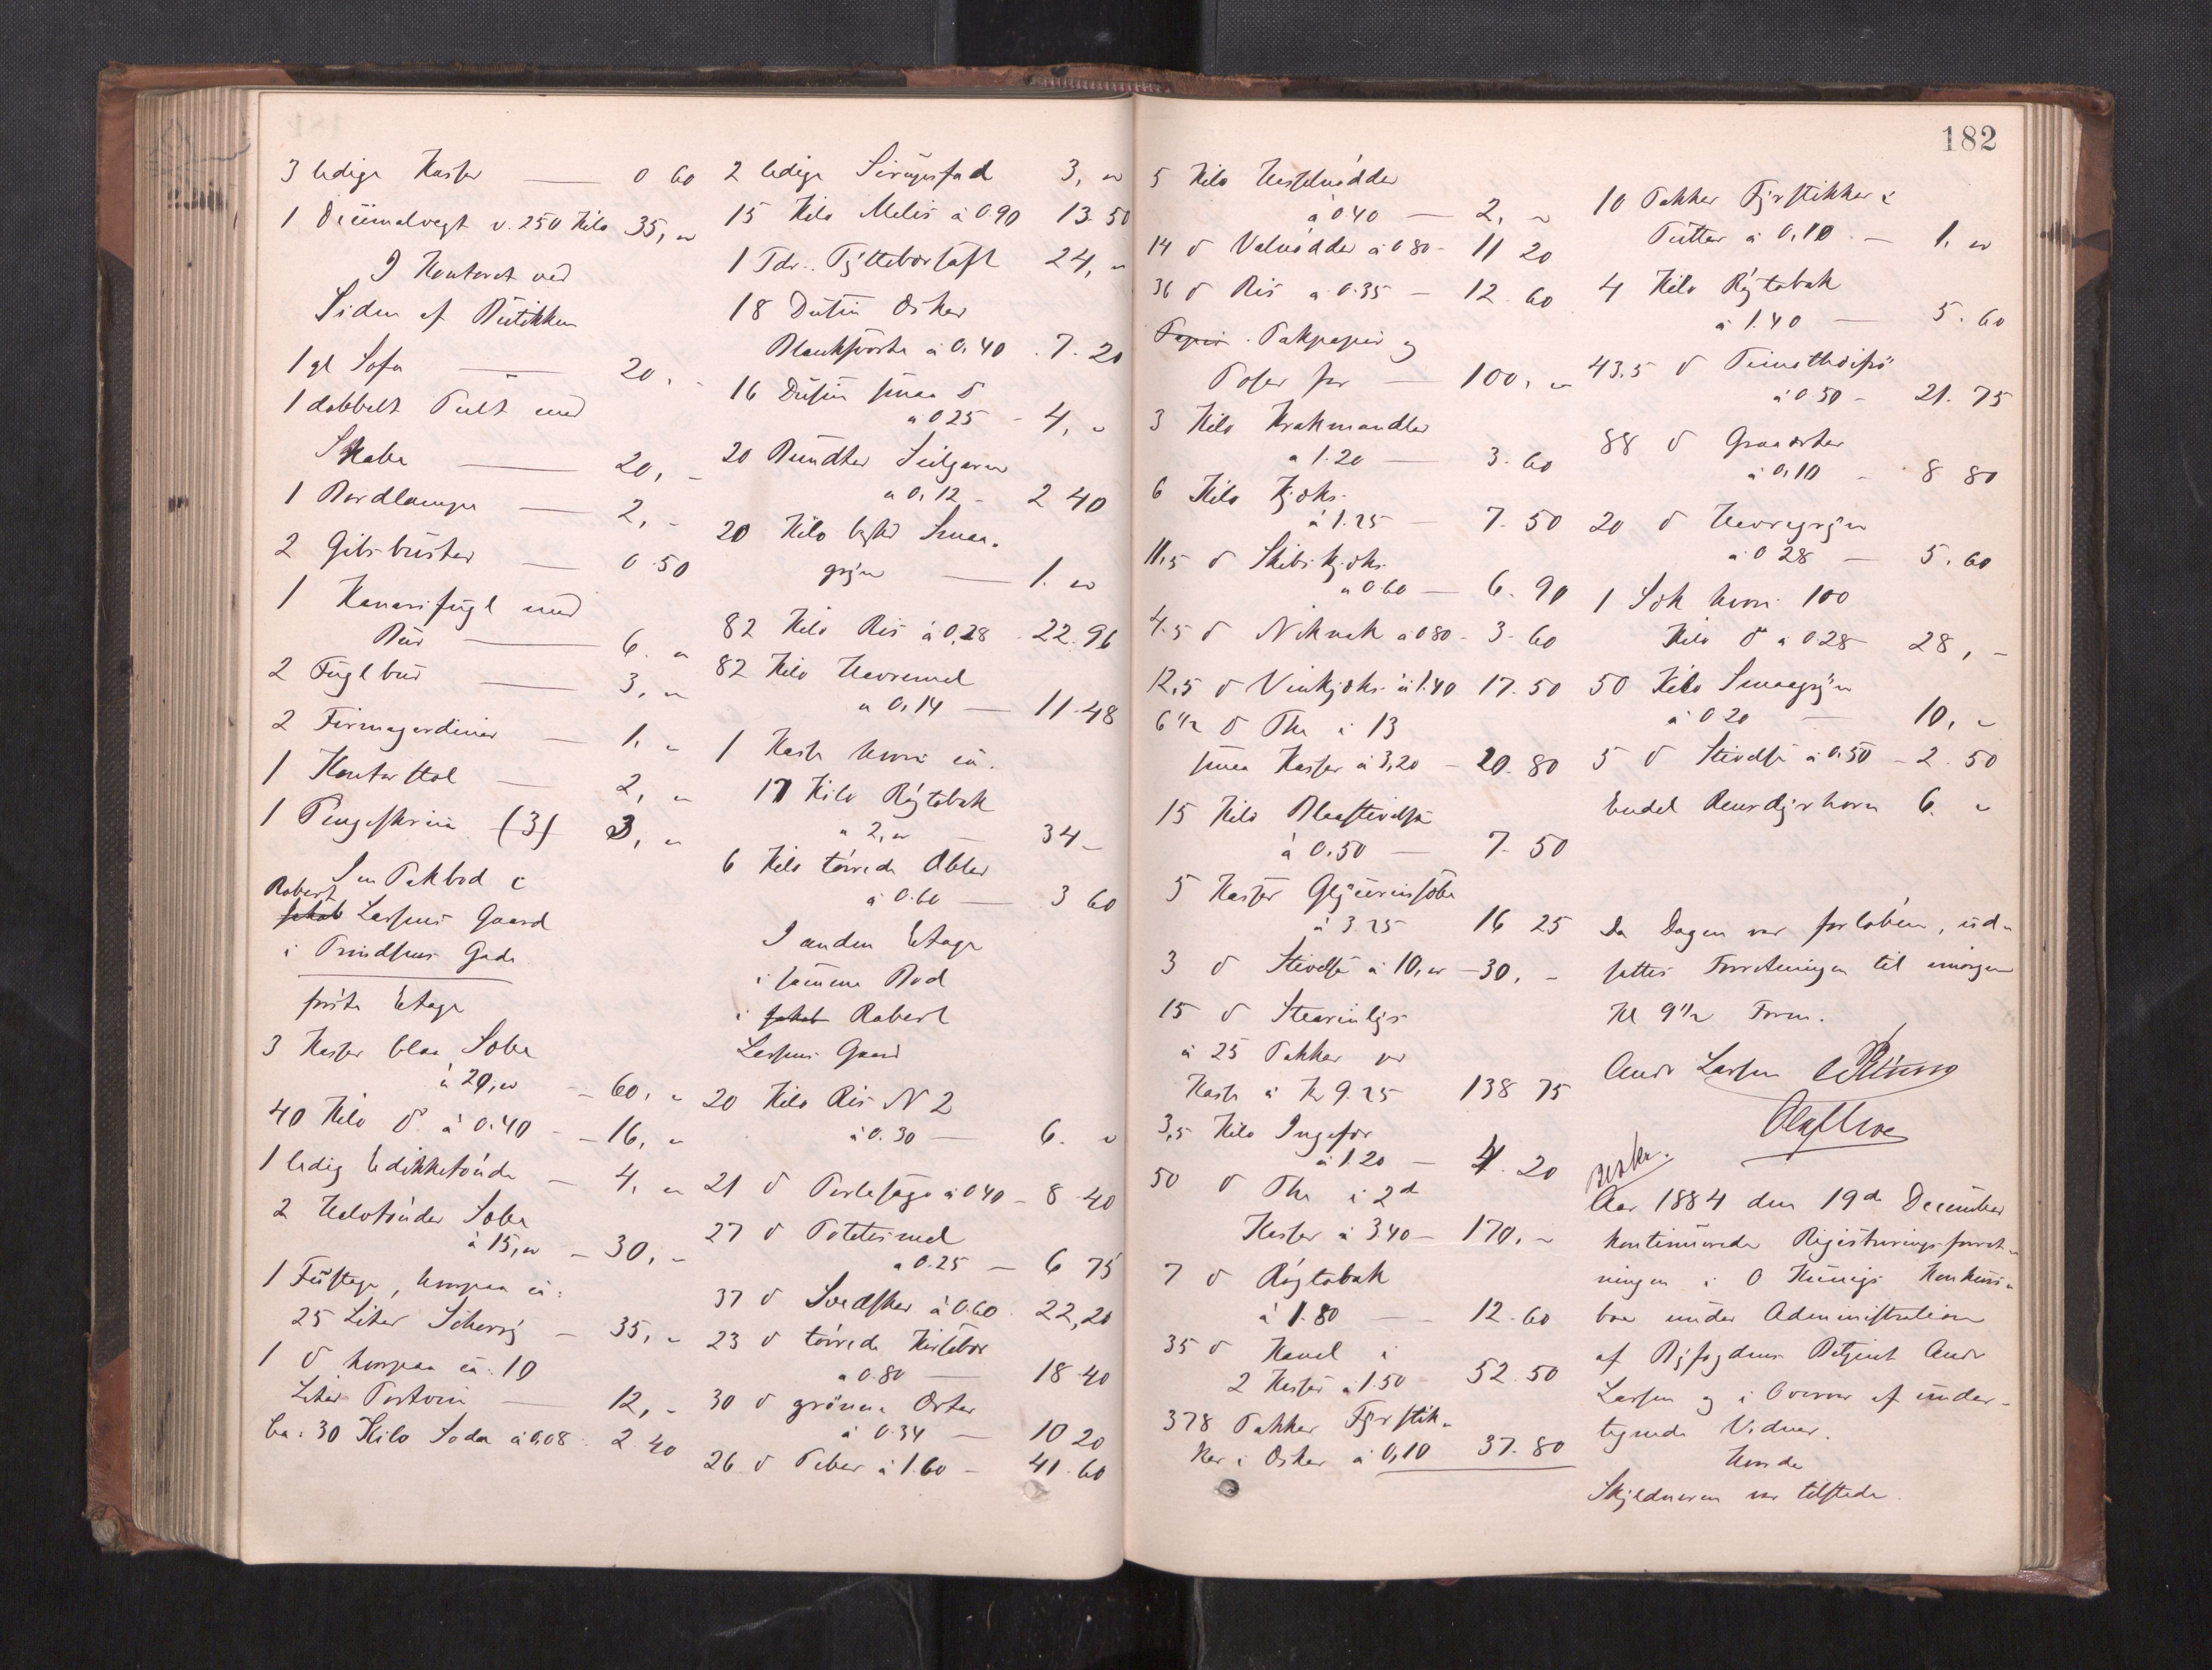 3 ledige Kasser — 0 60
1 Decimalvegt v. 250 Kilo 35, "
I Kontoret ved
Siden af Butikken
1 gl Sofa — 20, "
1 dobbelt Pult med
Skabe — 20, "
1 Bordlampe — 2, "
2 Gibsbuster — 0.50
1 Kanarifugl med
Bur — 6. "
2 Fuglbur — 3, "
2 Firmagardiner — 1. "
1 Kontorstol — 2, "
1 Pengeskrin (3) 3, "
I en Pakbod i
Robert
Jakob Larsens Gaard
i Trindsens Gade
første Etage
3 Kasser blaa Sæbe
à 20, " — 60, "
40 Kilo do à 0.40 — 16, "
1 ledig Edikketønde — 4, "
2 Halvtønder Sæbe
à 15, " — 30, "
1 Fustage, hvorpaa ca.
25 Liter Scherry — 35, "
1 do hvorpaa ca. 10
Liter Portvin — 12, "
Ca. 30 Kilo Soda à 0.08 2.40
2 ledige Sirupsfad 3, "
15 Kilo Melis à 0.90 13.50
1 Tdr. Tyttebærsaft 24, "
18 Dusin Æsker
Blanksværte à 0.40 7.20
16 Dusin smaa do
à 0.25 — 4, "
20 Bundter Seilgarn
à 0,12 — 2 40
20 Kilo Smaa-
gryn — 1. "
82 Kilo Ris à 0,28 22.96
82 Kilo Havremel
à 0,14 — 11.48
1 Kasse hvori ca.
17 Kilo Røgtobak
à 2, " — 34 "
6 Kilo tørrede Æbler
à 0.60 — 3 60
I anden Etage
i samme Bod
i Jakob Robert
Larsens Gaard
20 Kilo Ris N 2
à 0.30 — 6. "
21 do Perlesago à 0.40 — 8.40
27 do Potetesmel
à 0.25 — 6 75
37 do Svedsker à 0.60 22,20
23 do tørrede Kirsebær
à 0.80 — 18.40
30 do grønne Erter
à 0.34 — 10 20
26 do Peber à 1.60 — 41.60
182
5 Kilo Hasselnødder
à 0.40 — 2, "
14 do Valnødder à 0.80 — 11 20
36 do Ris à 0.35 — 12.60
Papir. Pakpapir og
Poser for — 100, "
3 Kilo Krakmandler
à 1.20 — 3.60
6 Kilo Kjæks
à 1.25 — 7.50
11,5 do Skibskjæks
à 0.60 — 6.90
4.5 do Niknak à 0.80 — 3.60
12,5 do Vinkjæks à 1.40 17.50
6 1/2 do The i 13
smaa Kasser à 3,20 — 20.80
15 Kilo Blaastivelse
à 0.50 — 7.50
5 Kasser Glycerinsæbe
à 3.25 16 25
3 do Stivelse à 10, " — 30, "
15 do Stearinlys
à 25 Pakker pr
Kasse à Kr 9.25 138 75
3,5 Kilo Ingefær
à 1.20 — 4.20
50 do The i 2 do
Kasser à 3.40 — 170, "
7 do Røgtobak
à 1.80 — 12.60
35 do Kanel i
2 Kasser à 1.50 52.50
378 Pakker Fyrstik-
ker i Æsker à 0,10 37.80
10 Pakker Fyrstikker i
Tutter à 0,10 — 1. "
4 Kilo Røgtobak
à 1.40 — 5.60
43.5 do Timotheifrø
à 0.50 — 21.75
88 do Graaerter
à 0,10 — 8 80
20 do Havregryn
à 0 28 — 5.60
1 Sæk hvori 100
Kilo do à 0.28 28, "
50 Kilo Smaagryn
à 0.20 — 10, "
5 do Stivelse à 0.50 — 2.50
Endel Rensdyrhorn 6. "
Da Dagen var forløben, ud-
sattes Forretningen til imorgen
Kl 9 1/2 Form.
Andr Larsen
Aar 1884 den 19de December
kontinueredes Registreringsforret-
ningen i O Konigs Konkurs-
bo under Administration
af Byfogdens Betjent Andr
Larsen og i Overvær af under-
tegnede Vidner.
Hvorda
Skyldneren var tilstede.